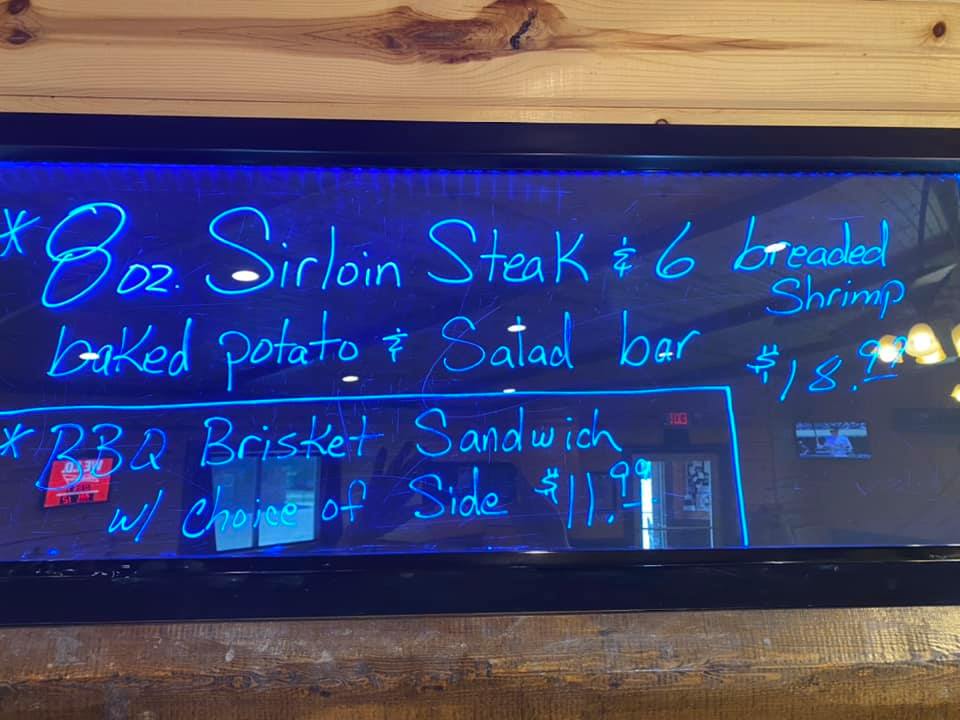 * 8 oz. Sirloin Steak & 6 breaded
Shrimp
baked potato & Salad bar $18.99
* BBQ Brisket Sandwich
w/ choice of Side $11.99